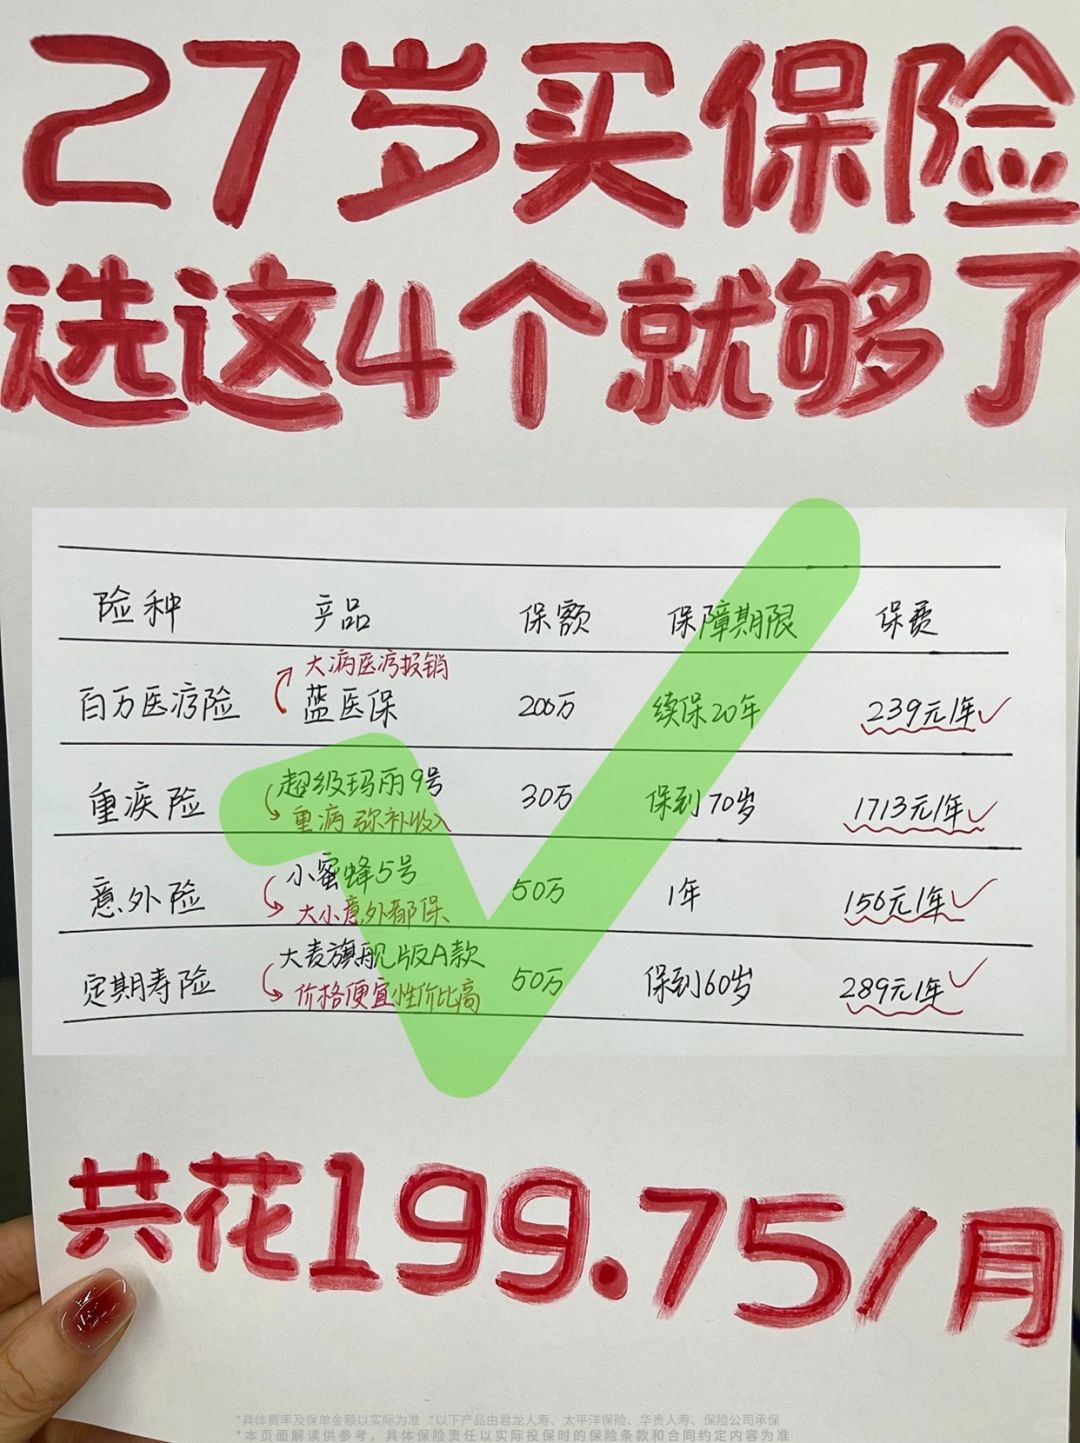 27岁买保险
选这4个就够了
险种 产品 保额 保障期限 保费
大病医疗报销
百万医疗险 蓝医保 200万 续保20年 239元/年
重疾险 超级玛丽9号 30万 保到70岁 1713元/年
重病弥补收入
意外险 小蜜蜂5号 50万 1年 156元/年
大小意外都保
定期寿险 大麦旗舰版A款 50万 保到60岁 289元/年
价格便宜性价比高
共花199.75/月
*具体费率及保单金额以实际为准 *以下产品由君龙人寿、太平洋保险、华贵人寿、保险公司承保
*本页面解读供参考，具体保险责任以实际投保时的保险条款和合同约定内容为准